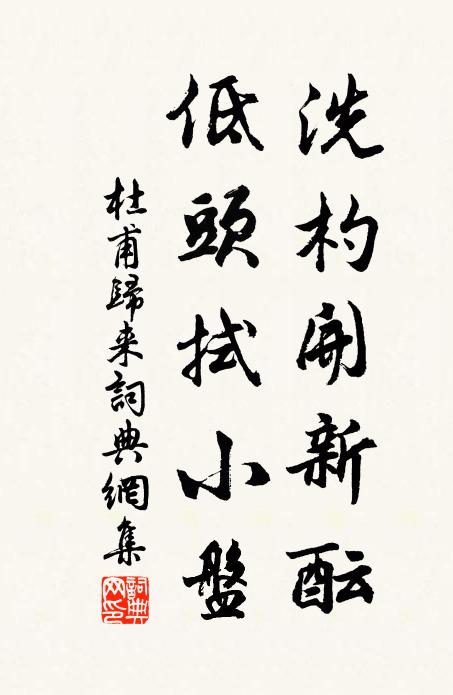 洗杓開新醞
低頭拭小盤
杜甫歸来詞典網集
詞典网印